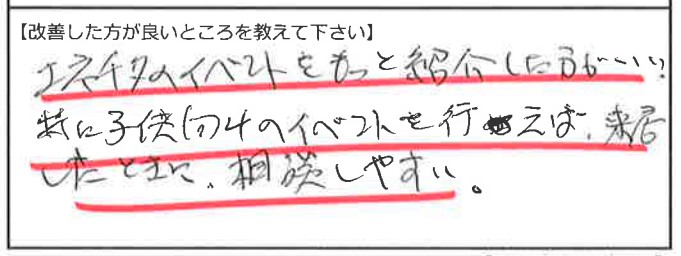 【改善した方が良いところを教えて下さい】
エネチタのイベントをもっと紹介した方がいい？
特に子供向けのイベントを行えば、来店
したときに、相談しやすい。